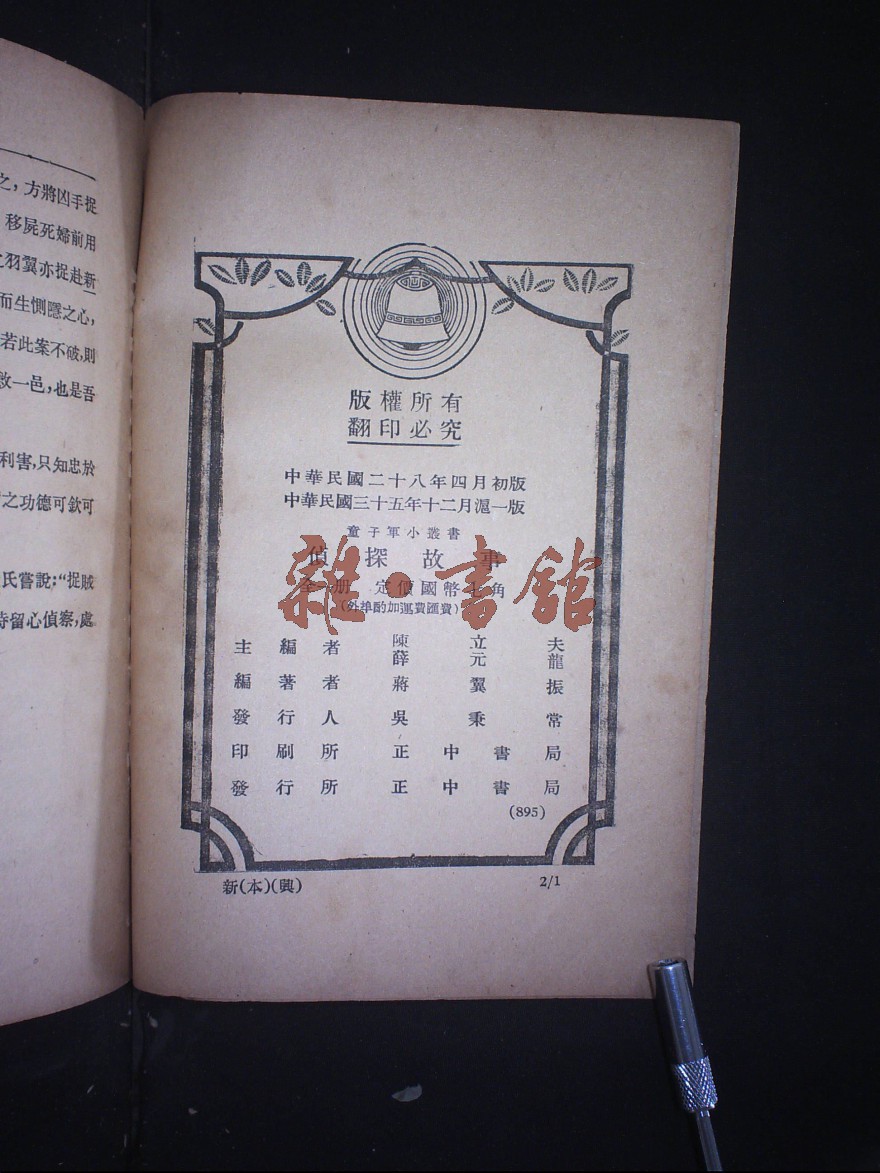 之，方將凶手捉
移屍死婦前用
之羽翼亦捉赴新
而生惻隱之心，
若此案不破，則
救一邑，也是吾
利害，只知忠於
之功德可欽可
氏嘗說：“捉賊
時留心偵察，處
版權所有
翻印必究
中華民國二十八年四月初版
中華民國三十五年十二月滬一版
童子軍小叢書
偵探故事
全一册 定價國幣七角
（外埠酌加運費匯費）
主編者 陳立夫
薛元龍
編著者 蔣翼振
發行人 吳秉常
印刷所 正中書局
發行所 正中書局
(895)
新(本)(興) 2/1
雜·書館